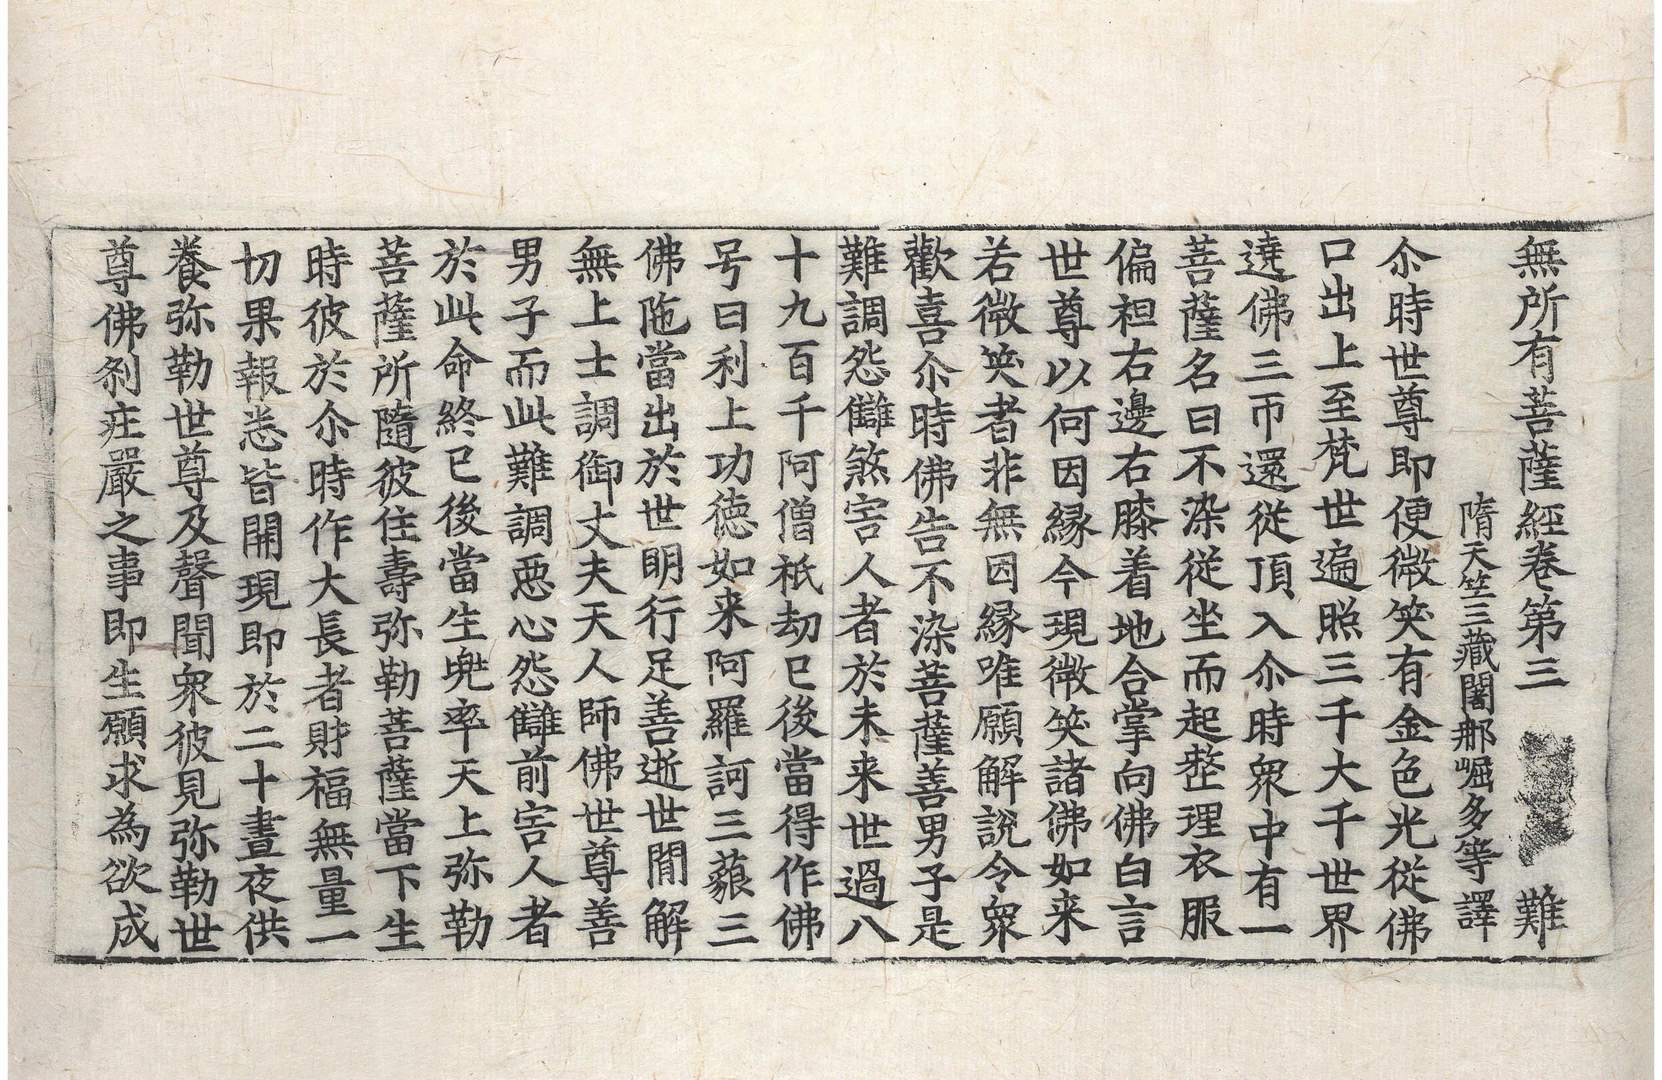 無所有菩薩經卷第三 難
隋天竺三藏闍那崛多等譯
尒時世尊即便微笑有金色光從佛
口出上至梵世遍照三千大千世界
遶佛三帀還從頂入尒時衆中有一
菩薩名曰不染從坐而起整理衣服
偏袒右邊右膝着地合掌向佛白言
世尊以何因緣今現微笑諸佛如来
若微笑者非無因緣唯願解說令衆
歡喜尒時佛告不染菩薩善男子是
難調怨讎煞害人者於未来世過八
十九百千阿僧祇劫已後當得作佛
号曰利上功德如来阿羅訶三藐三
佛陁當出於世明行足善逝世間解
無上士調御丈夫天人師佛世尊善
男子而此難調惡心怨讎前害人者
於此命終已後當生兜率天上弥勒
菩薩所隨彼住壽弥勒菩薩當下生
時彼於尒時作大長者財福無量一
切果報悉皆開現即於二十晝夜供
養弥勒世尊及聲聞衆彼見弥勒世
尊佛刹庄嚴之事即生願求為欲成